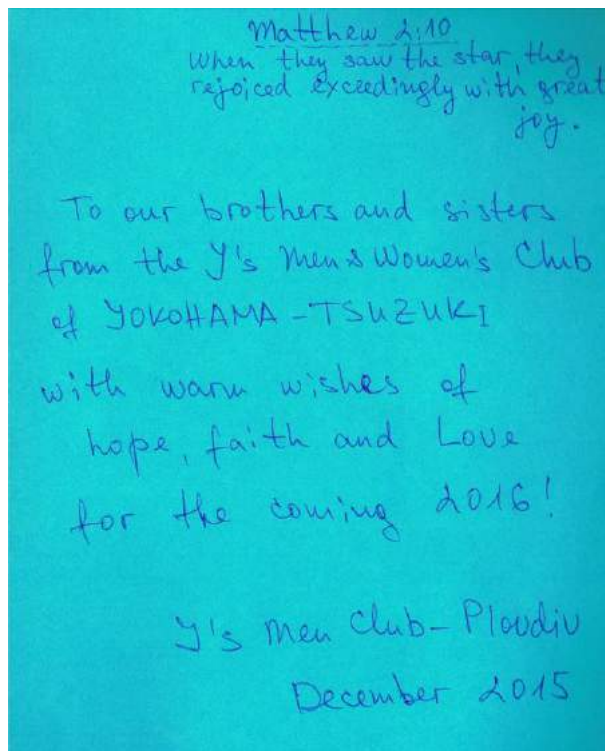 Matthew 2:10
when they saw the star, they
rejoiced exceedingly with great
joy.
To our brothers and sisters
from the Y's Men & Women's Club
of YOKOHAMA - TSUZUKI
with warm wishes of
hope, faith and Love
for the coming 2016!
Y's Men Club - Plovdiv
December 2015